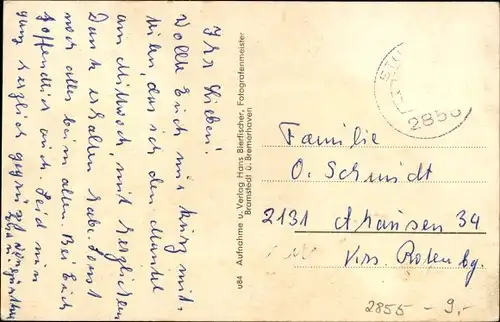 Ihr Lieben!
Wollte Euch nur kurz mit-
teilen, das ich den Mantel
am Mittwoch, mit herzlichem
Dank erhalten habe. Sonst
noch alles beim alten. Bei Euch
hoffentlich auch. Seid nun
ganz herzlich gegrüßt
u84 Aufnahme u. Verlag Hans Bierfischer, Fotografenmeister
Bramstedt ü. Bremerhaven
285
Familie
O. Schmidt
2131 Ahausen 34
Krs. Rotenbg.
2855 - 9,-